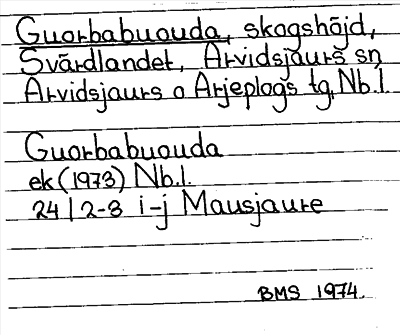 Guorbabuouda, skogshöjd,
Svärdlandet, Arvidsjaurs sn
Arvidsjaurs o Arjeplogs tg, Nb.l.
Guorbabuouda
ek (1973) Nb.l.
24 I 2-3 i-j Mausjaure
BMS 1974.